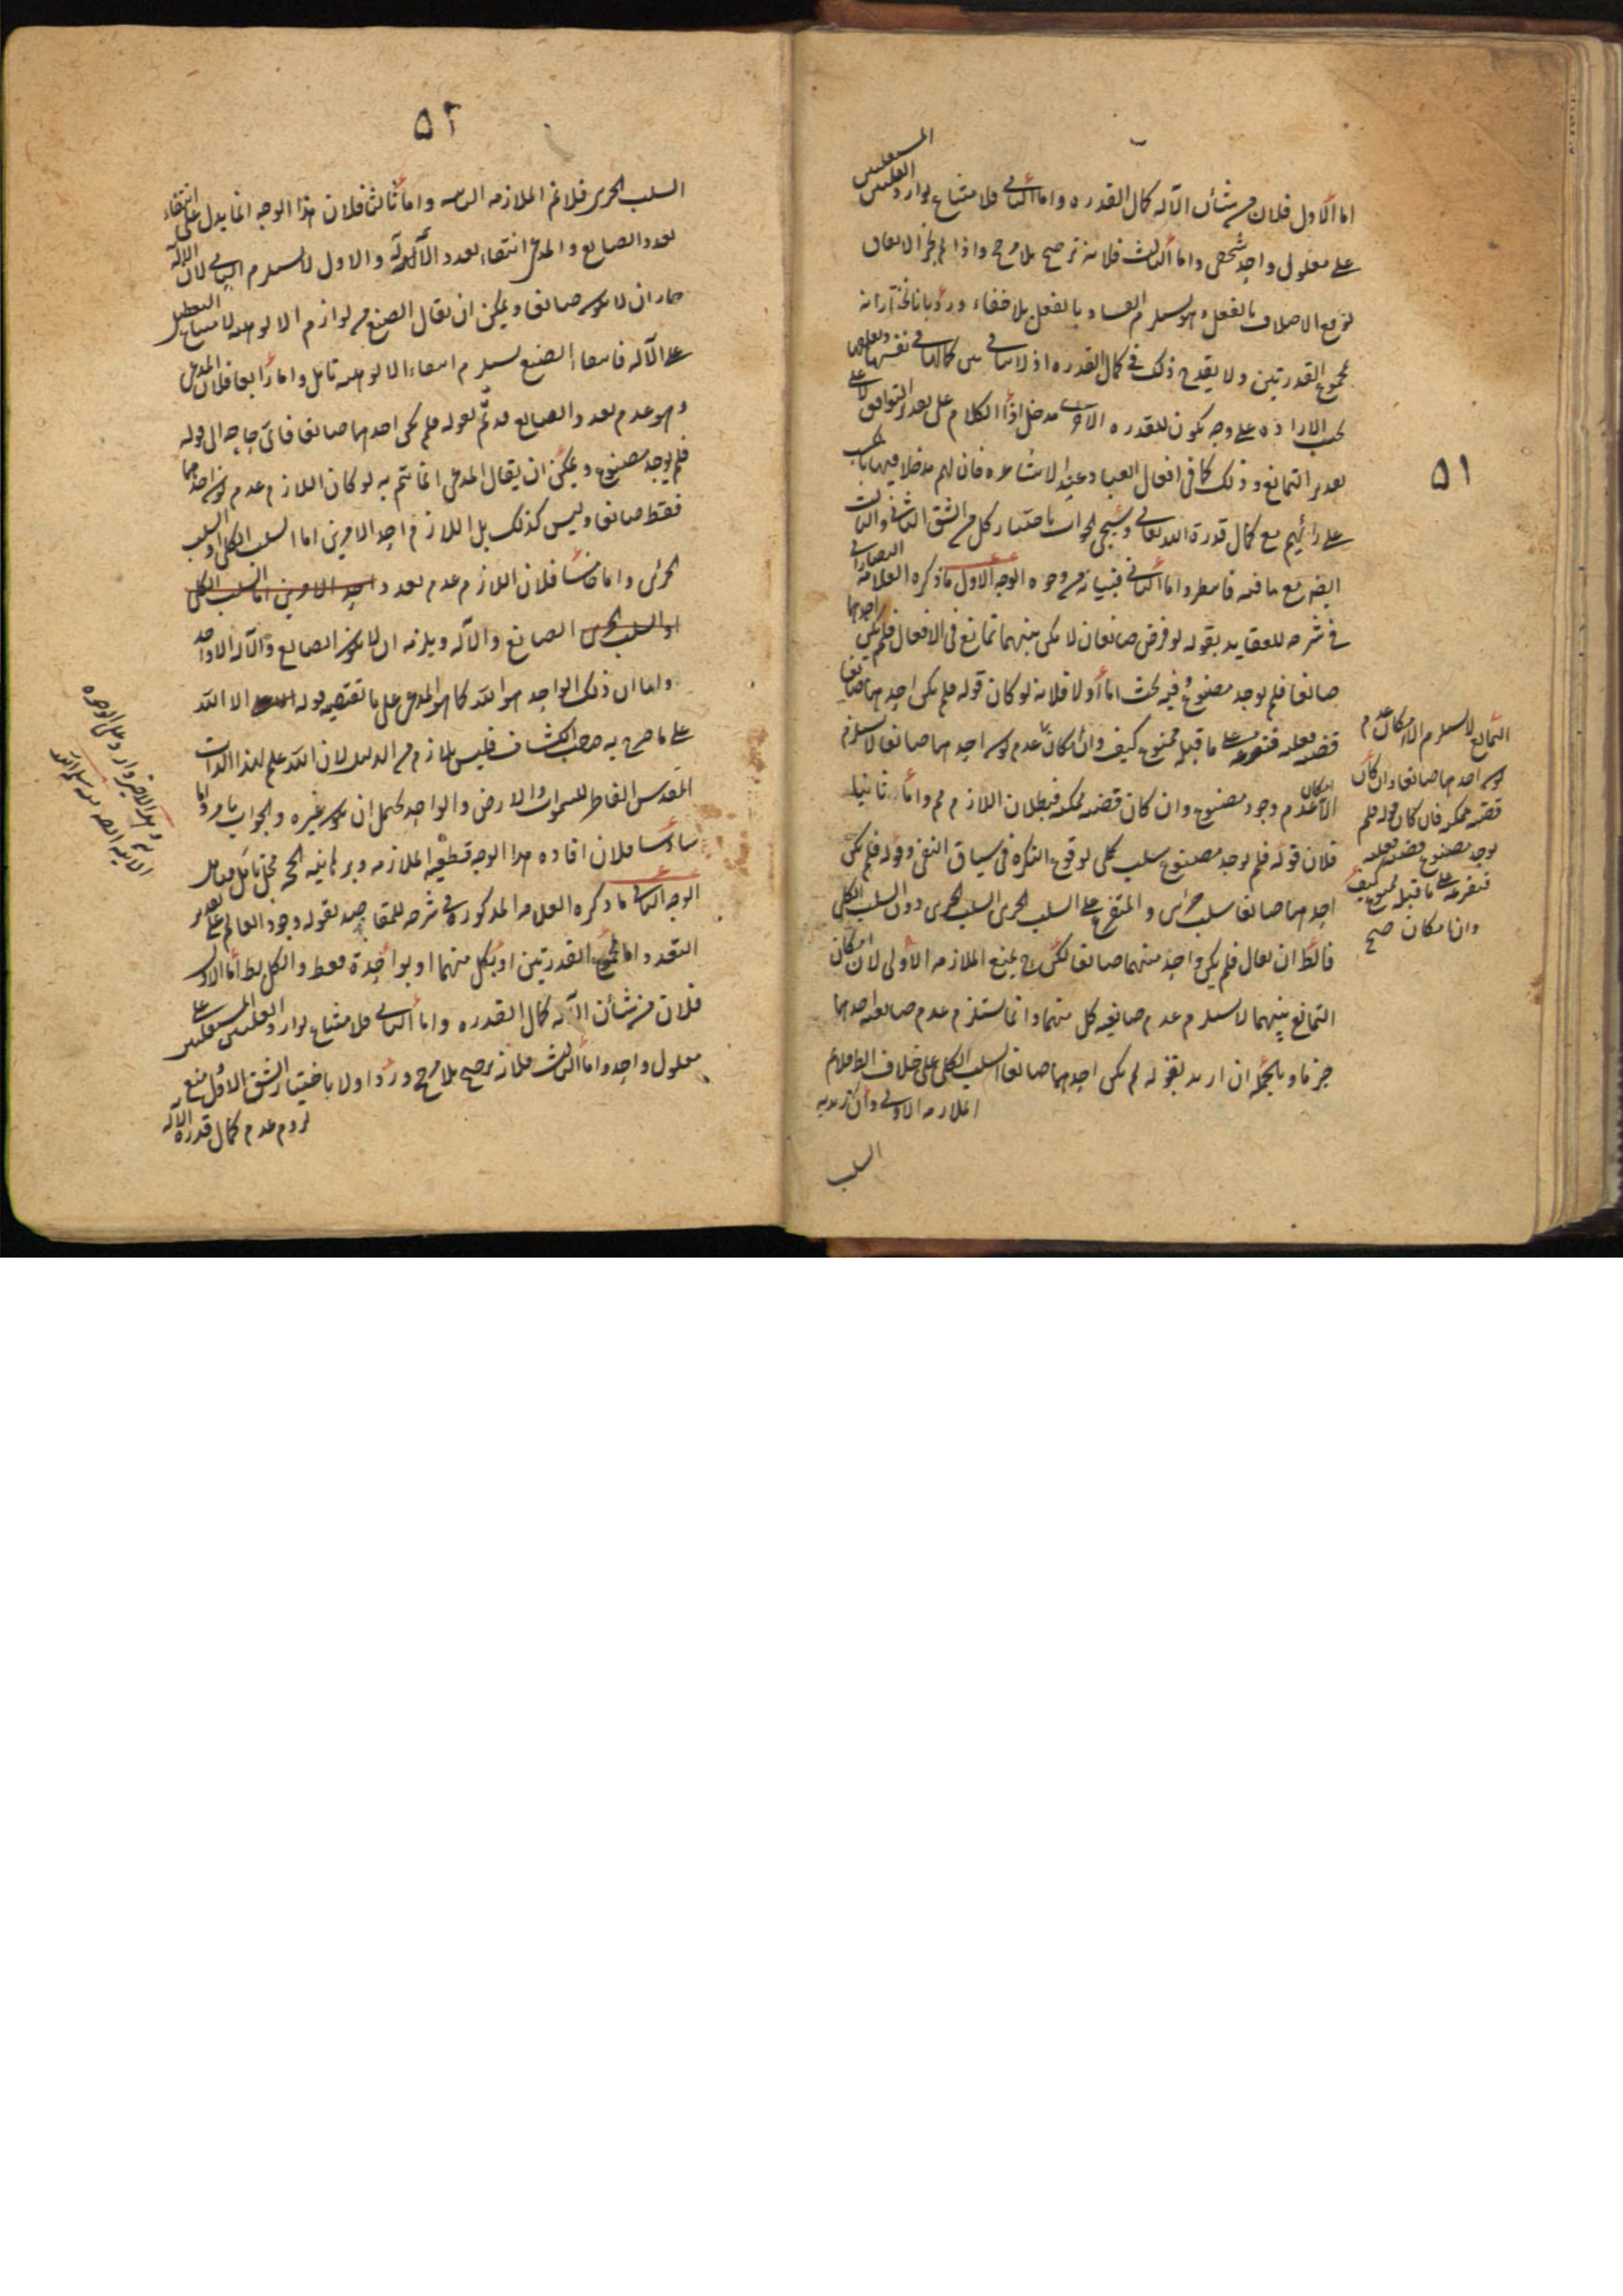 ٥١
اما الاول فلان من شأن الآله كمال القدره واما الثانى فلامتناع توارد العلتين المستقلتين
على معلول واحد شخصى واما الثالث فلانه ترجيح بلا مرجح واذا لم يجز الاتفاق
بالفعل وهو يستلزم الفساد بالفعل بلا خفاء ورد بانا نختار انه
بمجموع القدرتين ولا يقدح ذلك فى كمال القدره اذ لا تنافى بين كمالها فى نفسها وتعلقها
بحسب الاراده على وجه يكون للقدره الاخرى مدخل اذا الكلام على تقدير التوافق لا على
تقدير التمانع وذلك كما فى افعال العباد عند الاشاعره فان لهم مدخلا فيها بالكسب
على رأيهم مع كمال قدرة الله تعالى وسيجئ الجواب باختيار كل من الشق الثانى والثالث
ايضا مع ما فيه فانتظر واما الثانى فبيانه من وجوه الوجه الاول ما ذكره العلامة التفتازانى
فى شرحه للعقايد بقوله لو فرض صانعان لامكن بينهما تمانع فى الافعال فلم يكن احدهما
صانعا فلم يوجد مصنوع وفيه بحث اما اولا فلانه لو كان قوله فلم يكن احدهما صانعا
قضية فعليه فتفرعه على ما قبله ممنوع كيف وان امكان عدم كون احدهما صانعا لا يستلزم
الا امكان عدم وجود مصنوع وان كان قضيه ممكنه فبطلان اللازم مم واما ثانيا
فلان قوله فلم يوجد مصنوع سلب كلى لوقوع النكره فى سياق النفى وقوله فلم يكن
احدهما صانعا سلب جزئى والمتفرع على السلب الجزئى السلب الجزئى دون السلب الكلى
فالظ ان يقال فلم يكن واحد منهما صانعا لكن ح يمنع الملازمه الاولى لان امكان
التمانع بينهما لا يستلزم عدم صانعيه كل منهما وانما يستلزم عدم صانعيه احدهما
جزما وبالجمله ان اريد بقوله لم يكن احدهما صانعا السلب الكلى على خلاف الظ فلا تم
الملازمه الاولى وان اريد به
السلب
التمانع لا يستلزم الا امكان عدم
كون احدهما صانعا وان كان
قضيه ممكنه فان كان قوله فلم
يوجد مصنوع قضيه فعليه
فتفرعه على ما قبله ممنوع كيف
وان امكان صح
٥٢
السلب الجزئى فلا تم الملازمه الثانيه واما ثالثا فلان هذا الوجه انما يدل على انتفاء
تعدد الصانع والمدعى انتفاء تعدد الآله والاول لا يستلزم الثانى لان الاله
جاز ان لا يكون صانعا ويمكن ان يقال الصنع من لوازم الالوهيه لامتناع التعطيل
على الآله فانتفاء الصنع يستلزم انتفاء الالوهيه تامل واما رابعا فلان المدعى
وهو عدم تعدد الصانع قد تم بقوله فلم يكن احدهما صانعا فاى حاجه الى قوله
فلم يوجد مصنوع ويمكن ان يقال المدعى انما يتم به لو كان اللازم عدم كون احدهما
فقط صانعا وليس كذلك بل اللازم احد الامرين اما السلب الكلى او السلب
الجزئى واما خامسا فلان اللازم عدم تعدد احد الامرين اما السلب الكلى
او السلب الجزئى الصانع والآله ويلزمه ان لا يكون الصانع والآله الا واحد
واما ان ذلك الواحد هو الله كما هو المدعى على ما تقتضيه قوله الا الله
على ما صرح به صاحب الكشاف فليس بلازم من الدليل لان الله علم لهذا الذات
المقدس الفاطر للسموات والارض والواحد يحتمل ان يكون غيره والجواب ما مر واما
سادسا فلان افاده هذا الوجه قطعيه الملازمه وبرهانيه الحجه محل تامل فتامل
الوجه الثانى ما ذكره العلامه المذكور فى شرحه للمقاصد بقوله وجود العالم على تقدير
التعدد اما بمجموع القدرتين او بكل منهما او بواحدة فقط والكل بط اما الاول
فلان من شأن الآله كمال القدره واما الثانى فلامتناع توارد العلتين المستقلتين على
معلول واحد واما الثالث فلانه ترجيح بلا مرجح ورد اولا باختيار الشق الاول منع
لزوم عدم كمال قدرة الآله